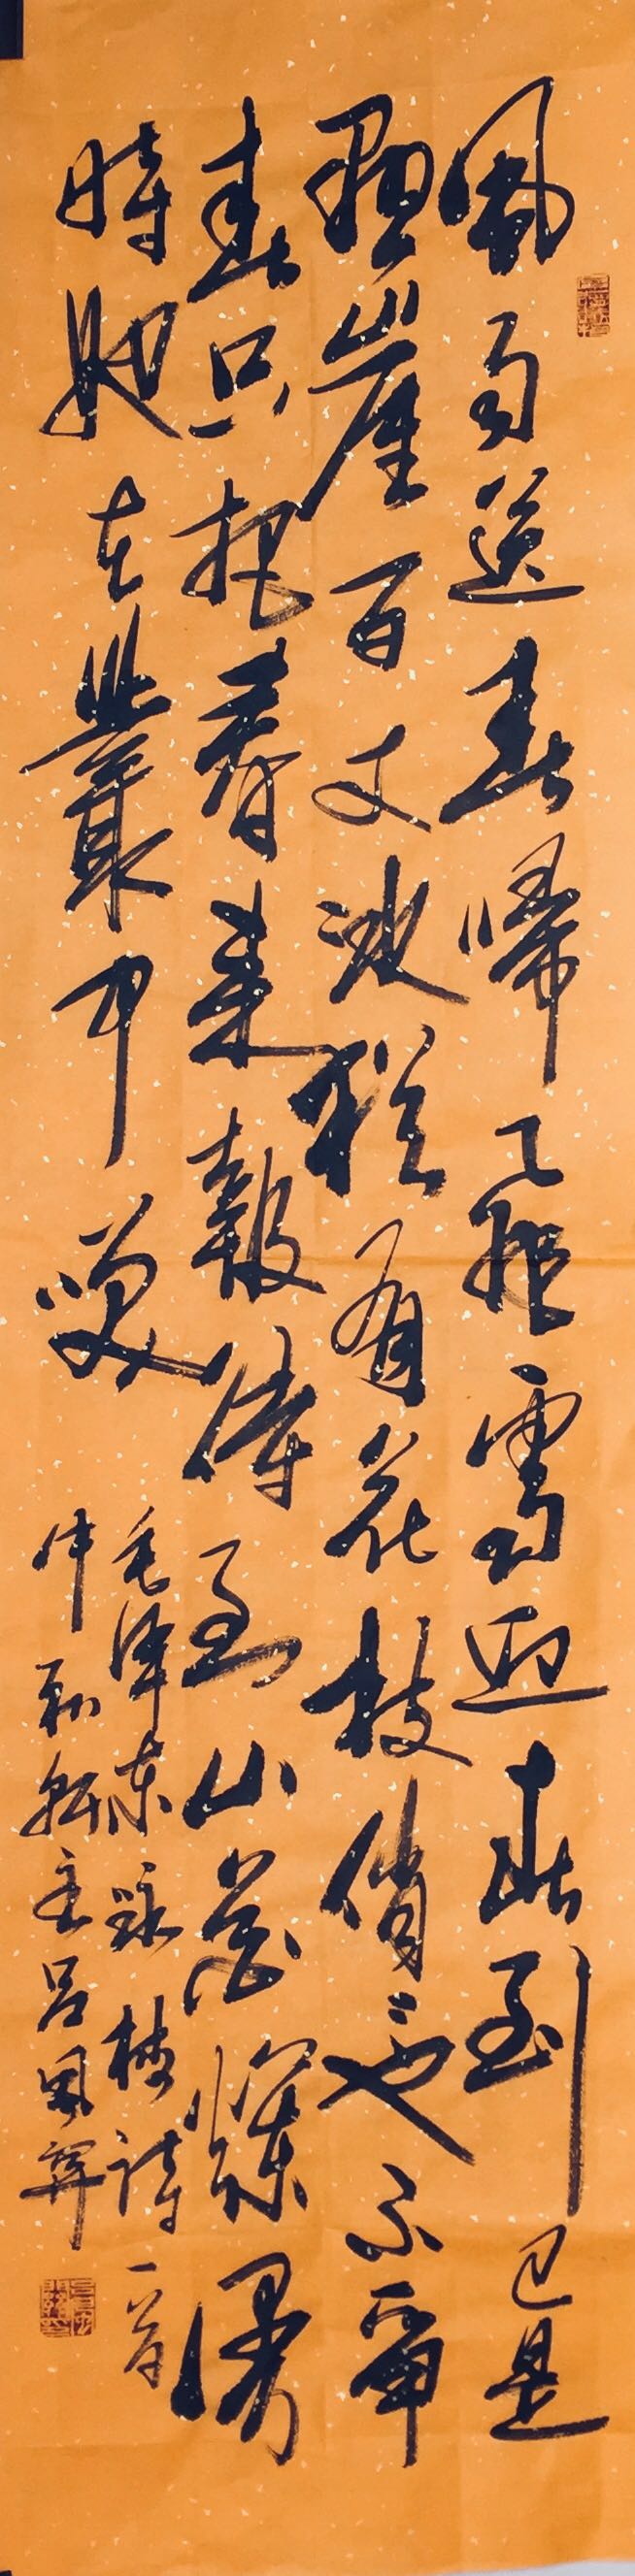 風雨送春歸飛雪迎春到已是
懸崖百丈冰猶有花枝俏々也不爭
春只把春來報待到山花爛漫
時她在叢中笑
毛泽东詠梅詩一首
軒主吕風